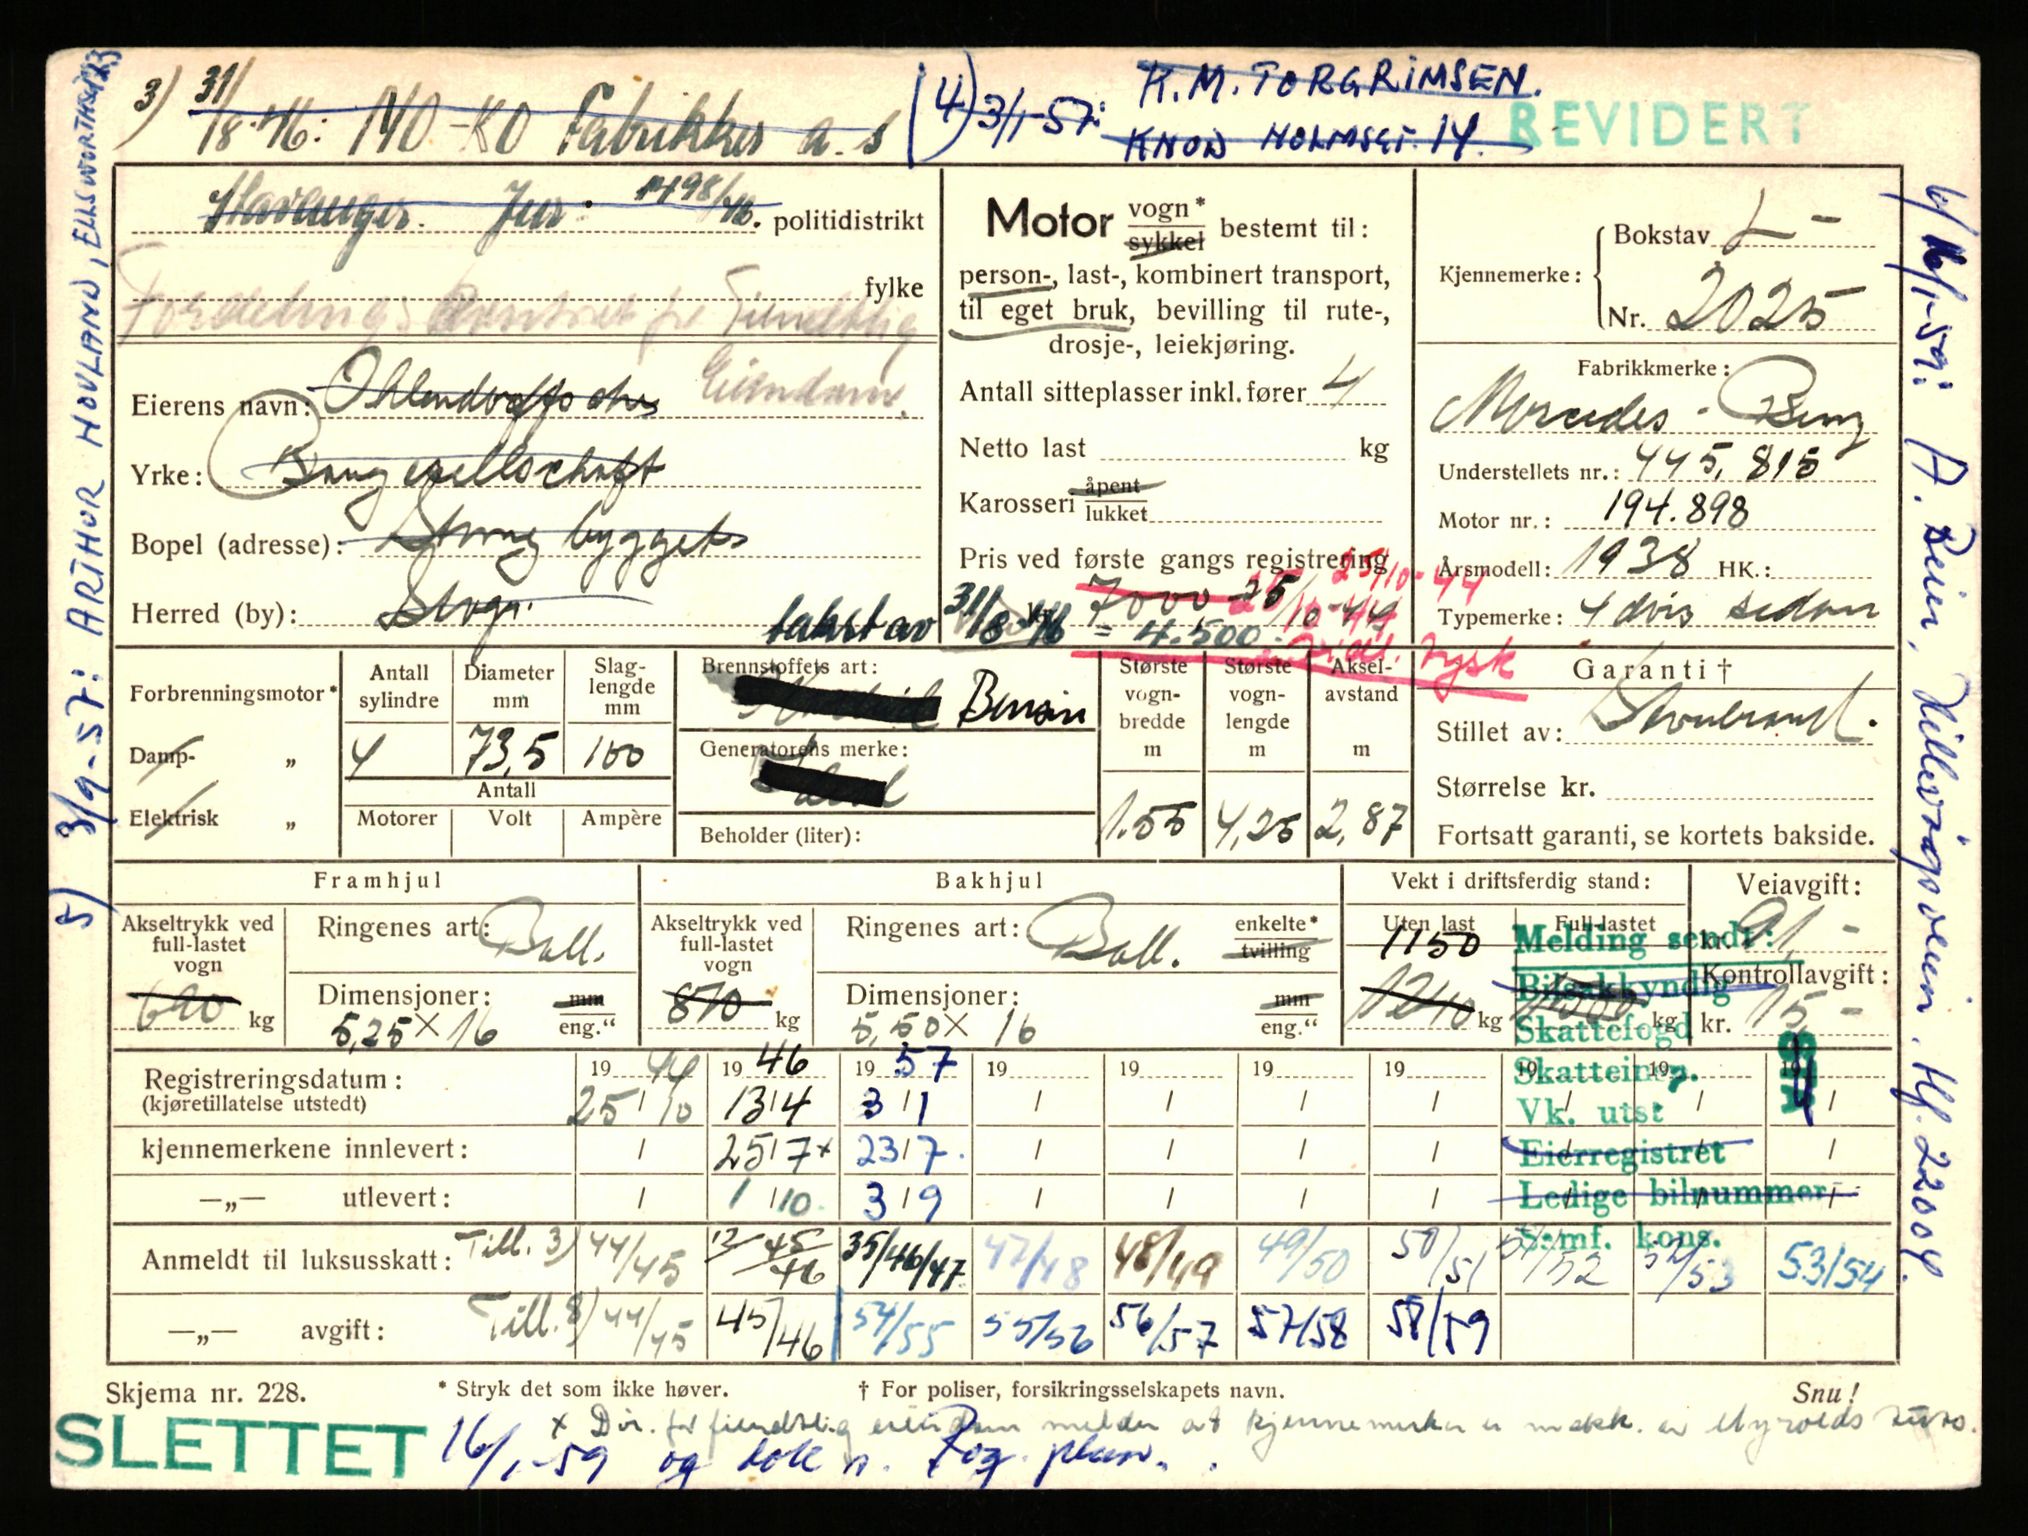 3) 31/8-46: NO-KO Fabrikker a.s (4) 3/1-57: K. M. TORGRIMSEN.
KNUD HOLMSGT. 14.
REVIDERT
Stavanger. Jnr. 1498/46. politidistrikt
fylke
Fordelingskontoret for Fiendtlig
Eiendom.
Eierens navn:
Yrke: Baugesellschaft
Bopel (adresse): bygget
Herred (by): Stvgr.
takst av 31/8-46 = 4.500.
Motor vogn* sykkel bestemt til:
person-, last-, kombinert transport,
til eget bruk, bevilling til rute-,
drosje-, leiekjøring.
Antall sitteplasser inkl. fører 4
Netto last kg
Karosseri åpent lukket
Pris ved første gangs registrering
kr. 7000 25/10-44
25/10-44
tysk
Kjennemerke: Bokstav L-
Nr. 2025
Fabrikkmerke:
Mercedes-Benz
Understellets nr.: 445,815
Motor nr.: 194.898
Årsmodell: 1938 HK.:
Typemerke: 4 dørs sedan
Forbrenningsmotor*
Damp- „
Elektrisk „
Antall sylindre
4
Diameter mm
73,5
Slag-lengde mm
100
Antall
Motorer Volt Ampère
Brennstoffets art:
Bensin
Generatorens merke:
Beholder (liter):
Største vogn-bredde m
1.55
Største vogn-lengde m
4,25
Aksel-avstand m
2,87
Garanti †
Stillet av: Storebrand.
Størrelse kr.
Fortsatt garanti, se kortets bakside.
Framhjul
Akseltrykk ved full-lastet vogn
690 kg
Ringenes art: Ball.
Dimensjoner: mm eng."
5,25 × 16
Bakhjul
Akseltrykk ved full-lastet vogn
870 kg
Ringenes art: Ball. enkelte* tvilling
Dimensjoner: mm eng."
5,50 × 16
Vekt i driftsferdig stand:
Uten last
1150
1240 kg
Full-lastet
kg
Veiavgift:
kr. 91,-
Kontrollavgift:
kr. 15,-
Melding sendt:
Bilsakkyndig
Skattefogd
Skatteinsp.
Vk. utst
Eierregistret
Ledige bilnummer
S:mf. kons.
19 44 19 46 19 57 19 19 19 19 19 19 19
Registreringsdatum: 25/10 13/4 3/1
(kjøretillatelse utstedt)
kjennemerkene innlevert: 25/7× 23/7.
—„— utlevert: 1/10. 3/9
Anmeldt til luksusskatt: Till. 3) 44/45 45/46 35/46/47 47/48 48/49 49/50 50/51 51/52 52/53 53/54
—„— avgift: Till. 8) 44/45 45/46 54/55 55/56 56/57 57/58 58/59
Skjema nr. 228. * Stryk det som ikke høver. † For poliser, forsikringsselskapets navn. Snu!
× Dir. for fiendtlig eiendom melder at kjennemerker er
SLETTET 16/1-59 og
5) 3/9-57: ARTHUR HOVLAND, ELLSWORTHSGT 23
6) 16/1-59: A. Beien, Hillevågsveien. Hf. 22004.